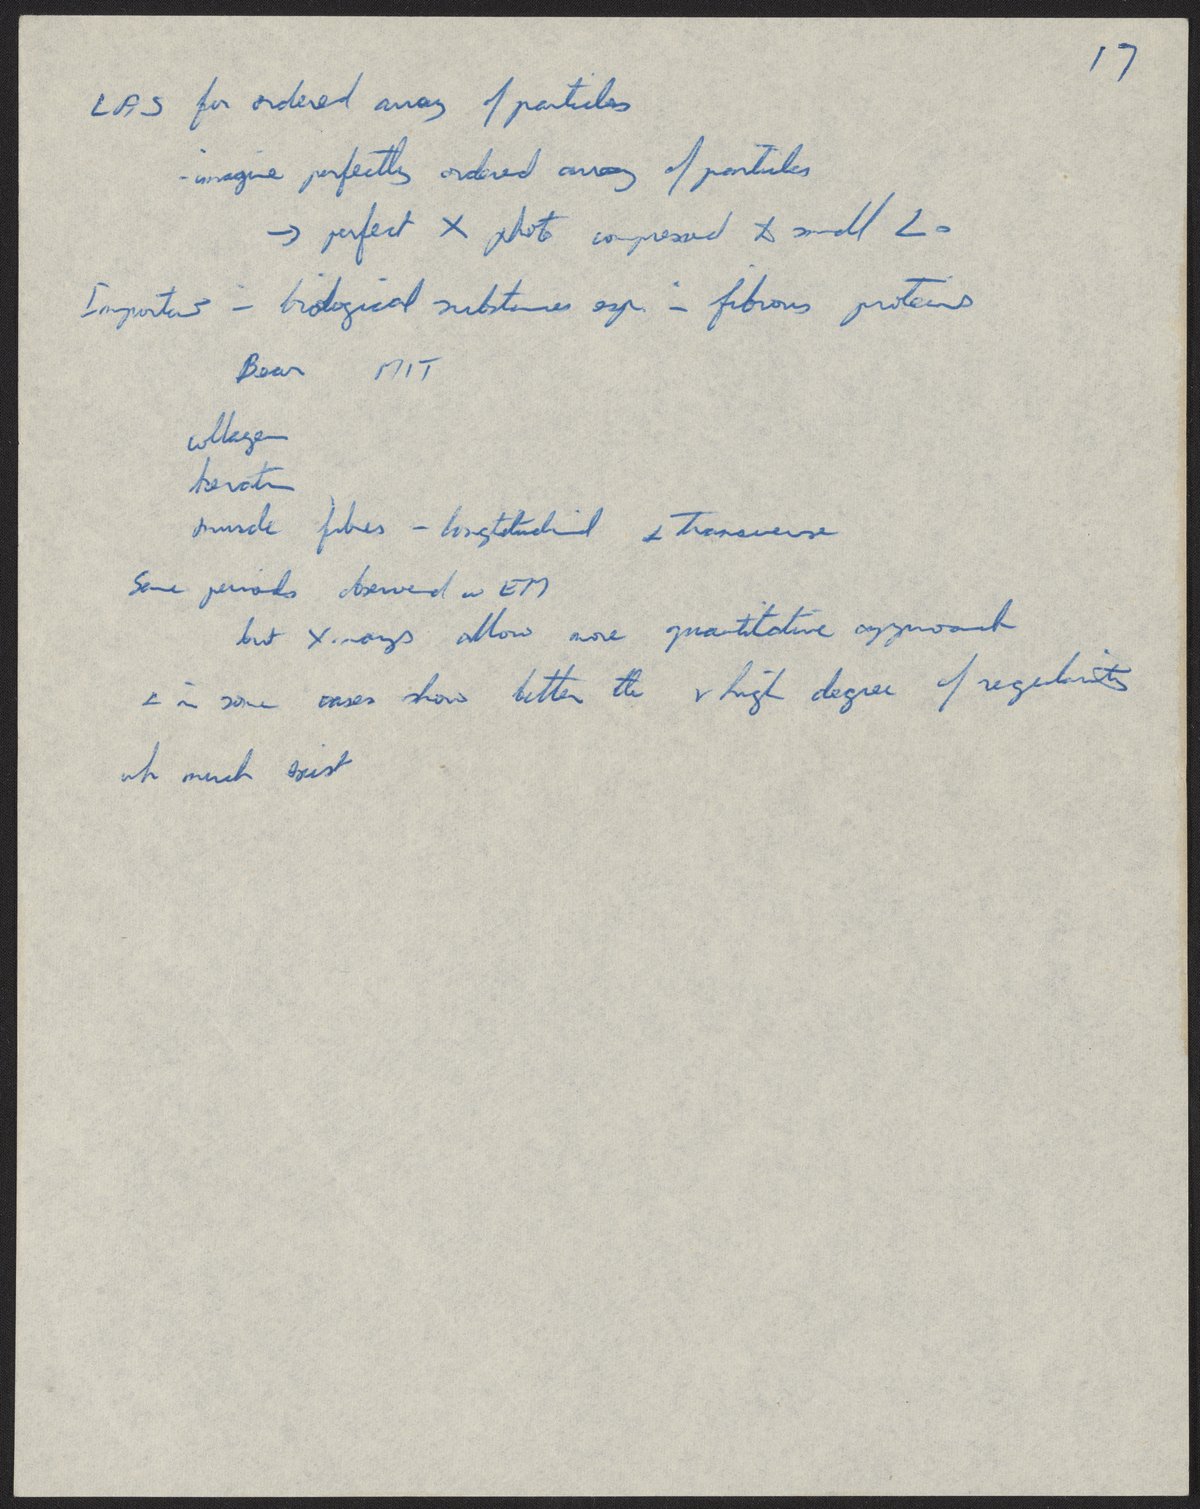 17
LAS for ordered array of particles
- imagine perfectly ordered array of particles
→ perfect X photo compressed to small ∠s
Important in biological substances esp. in fibrous proteins
Bear MIT
collagen
keratin
muscle fibres - longitudinal & transverse
Same periods observed in EM
but X-rays allow more quantitative approach
& in some cases show better the v high degree of regularity
wh much exist